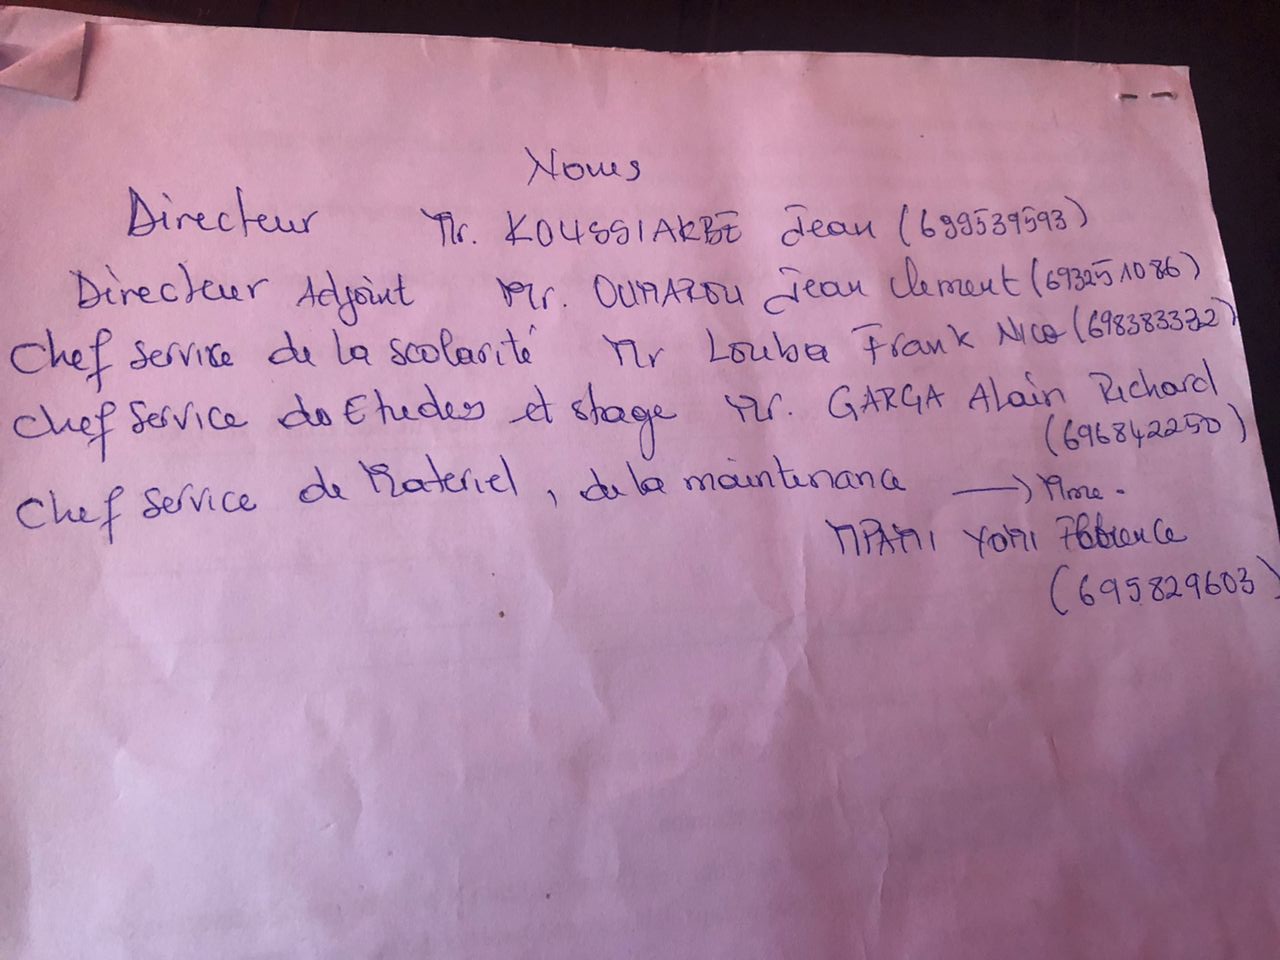 Noms
Directeur Mr. KOUSSIAKBÉ Jean (699539593)
Directeur Adjoint Mr. OUMAROU Jean Clement (693251086)
Chef service de la scolarité Mr Louba Frank Nico (698383332)
Chef service des Etudes et stage Mr. GARGA Alain Richard
(696842250)
Chef service de Materiel, de la maintenance → Mme.
MPAMI YOMI Florence
(695829603)